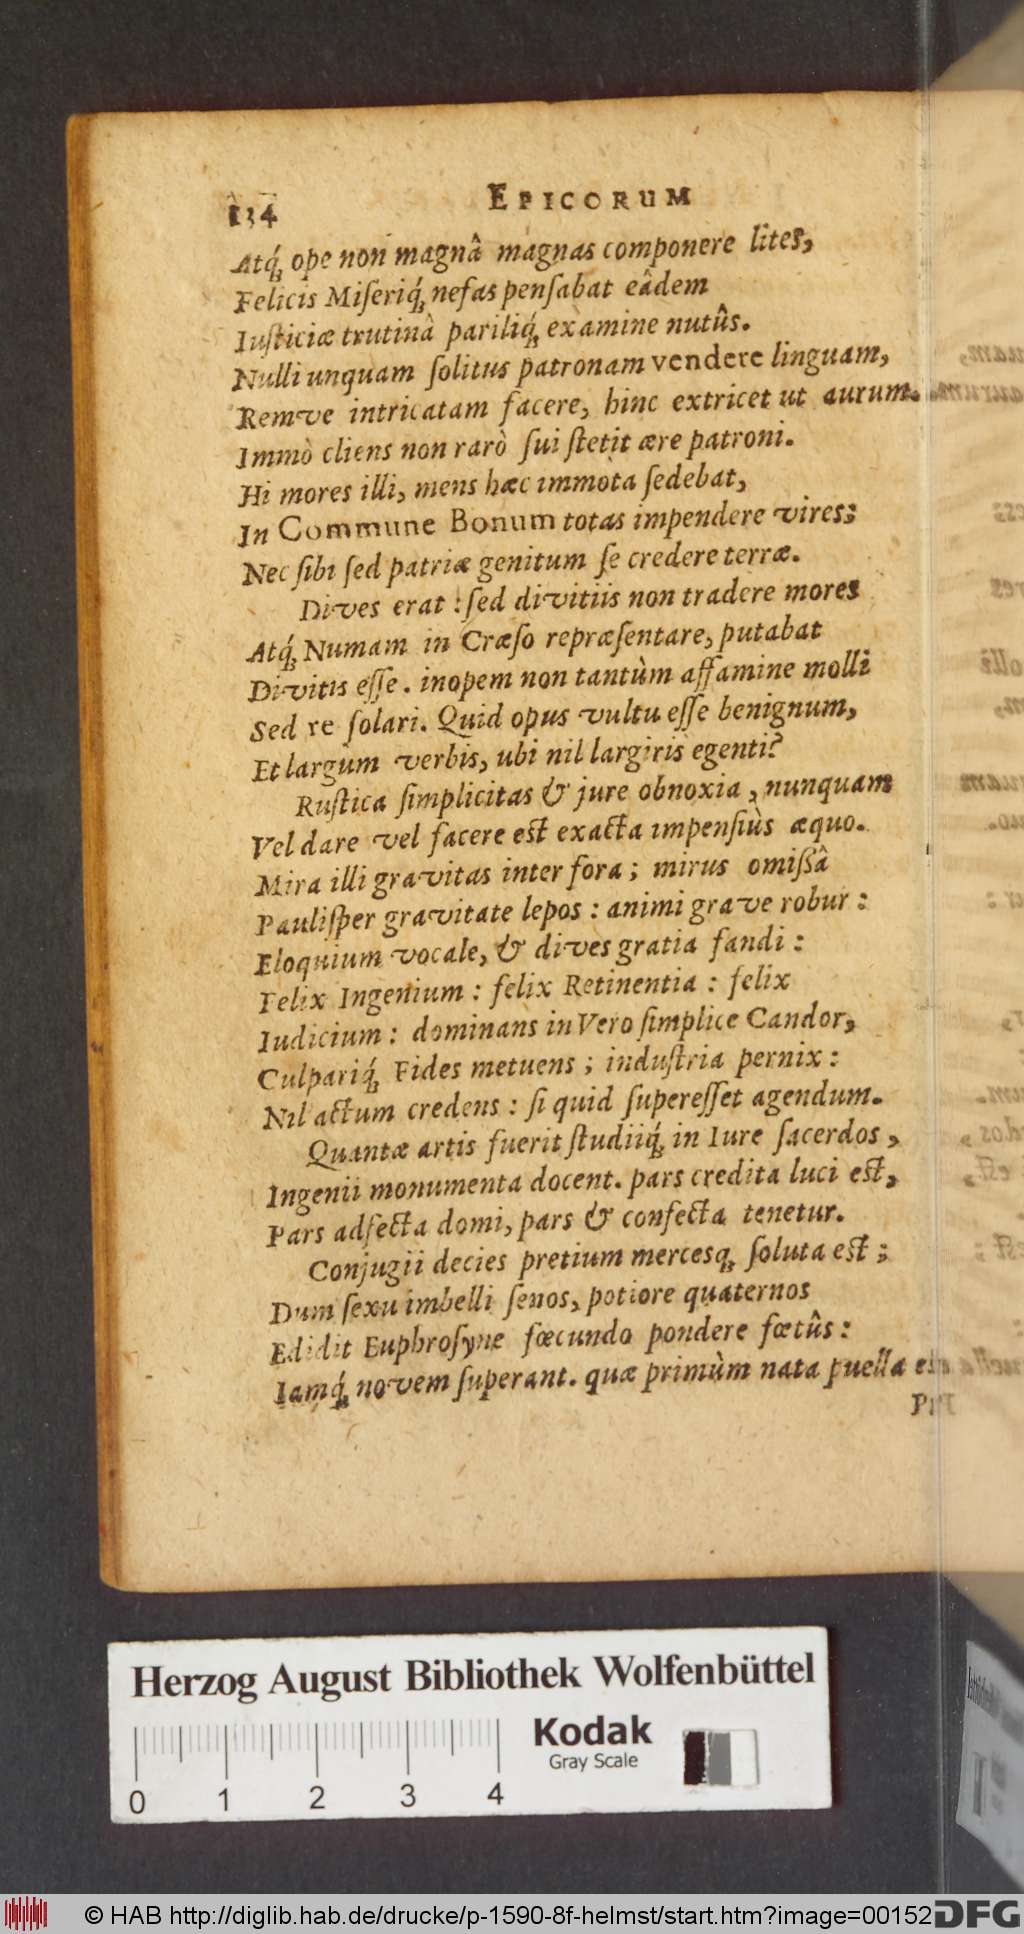 134 EPICORUM
Atq́; ope non magnâ magnas componere lites,
Felicis Miseriq́; nefas pensabat eâdem
Iusticiæ trutinà pariliq́; examine nutûs.
Nulli unquam solitus patronam vendere linguam,
Remve intricatam facere, hinc extricet ut aurum.
Immò cliens non rarò sui stetit ære patroni.
Hi mores illi, mens hæc immòta sedebat,
In Commune Bonum totas impendere vires;
Nec sibi sed patriæ genitum se credere terræ.
Dives erat : sed divitiis non tradere mores
Atq́; Numam in Cræso repræsentare, putabat
Divitis esse. inopem non tantùm affamine molli
Sed re solari. Quid opus vultu esse benignum,
Et largùm verbis, ubi nil largiris egenti?
Rustica simplicitas & jure obnoxia, nunquam
Vel dare vel facere est exacta impensiùs æquo.
Mira illi gravitas inter fora; mirus omissâ
Paulisper gravitate lepos : animi grave robur :
Eloquium vocale, & dives gratia fandi :
Felix Ingenium : felix Retinentia : felix
Iudicium : dominans in Vero simplice Candor,
Culpariq́; Fides metuens ; industria pernix :
Nil actum credens : si quid superesset agendum.
Quantæ artis fuerit studiiq́; in Iure sacerdos,
Ingenii monumenta docent. pars credita luci est,
Pars adfecta domi, pars & confecta tenetur.
Conjugii decies pretium mercesq; soluta est ;
Dum sexu imbelli senos, potiore quaternos
Edidit Euphrosyne fœcundo pondere fœtûs :
Iamq́; novem superant. quæ primùm nata puella est
Herzog August Bibliothek Wolfenbüttel
Kodak
Gray Scale
0 1 2 3 4
© HAB http://diglib.hab.de/drucke/p-1590-8f-helmst/start.htm?image=00152
DFG